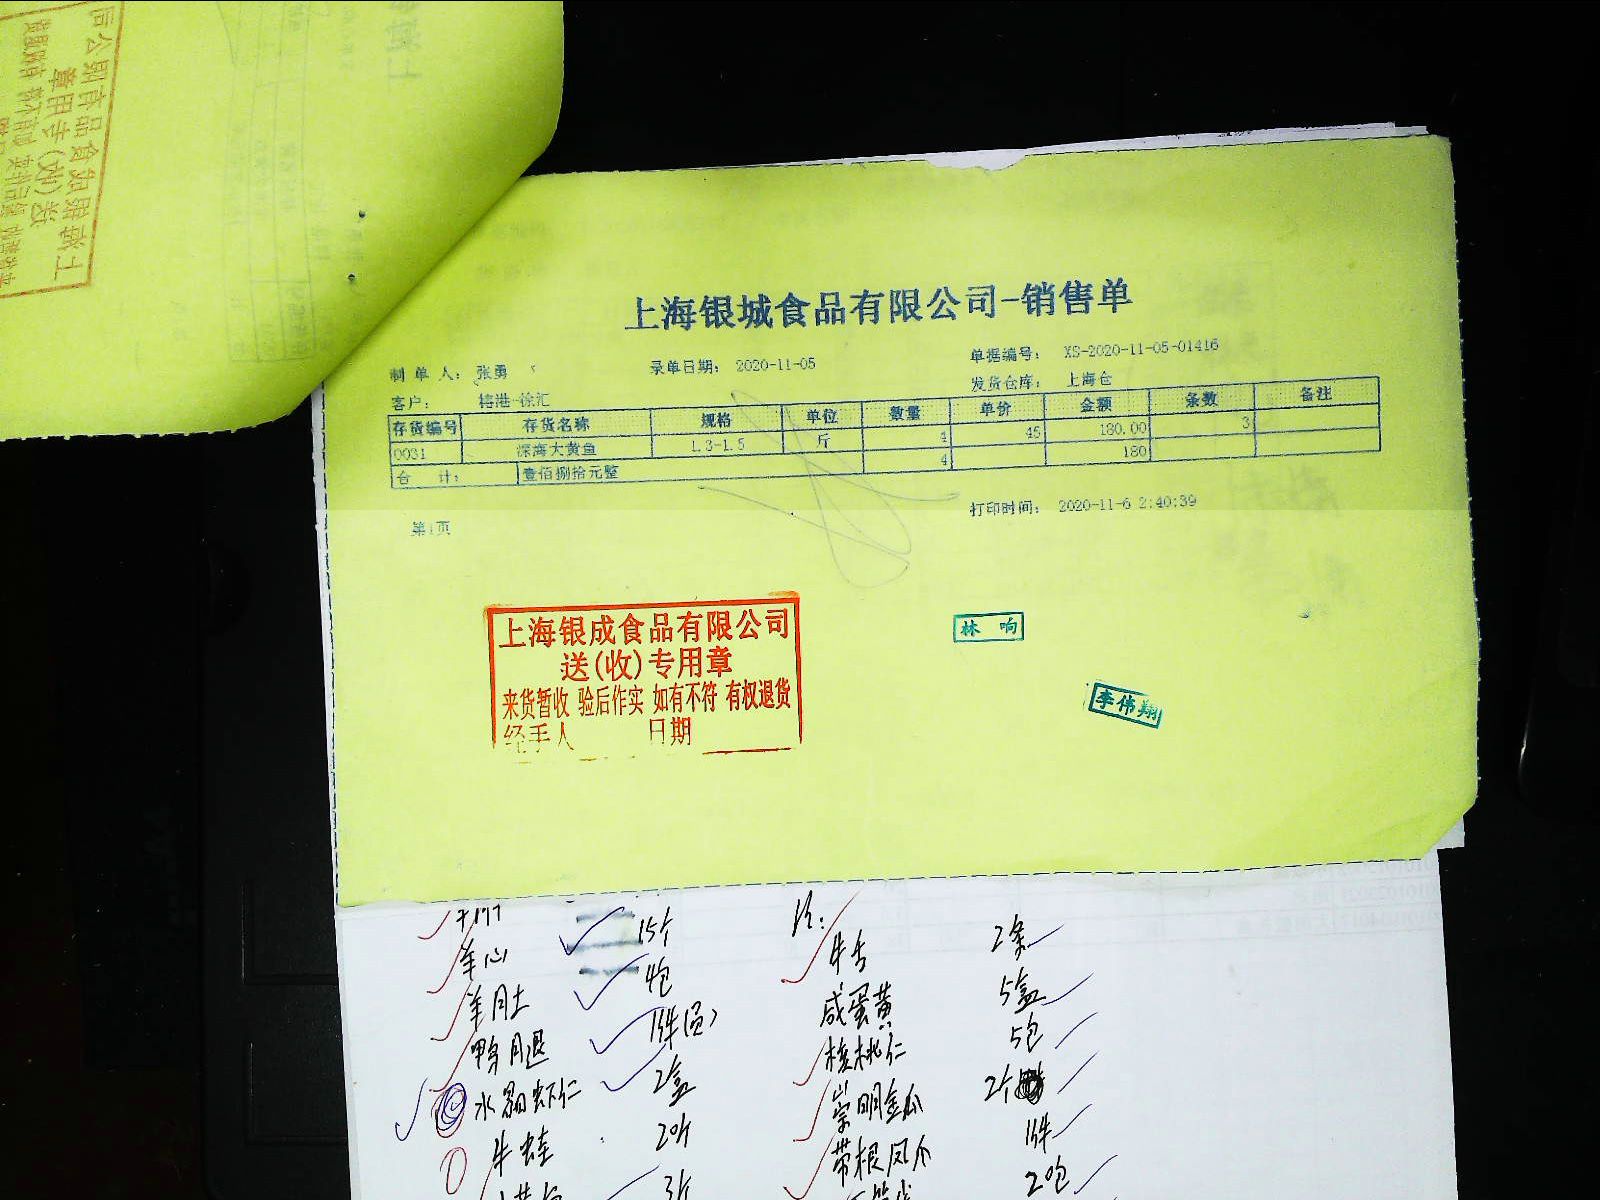 上海银城食品有限公司-销售单
制单人: 张勇 录单日期: 2020-11-05 单据编号: XS-2020-11-05-01416
客户: 梅港-徐汇 发货仓库: 上海仓
存货编号 存货名称 规格 单位 数量 单价 金额 条数 备注
0031 深海大黄鱼 1.3-1.5 斤 4 45 180.00 3
合 计: 壹佰捌拾元整 4 180
第1页 打印时间: 2020-11-6 2:40:39
上海银成食品有限公司
送(收)专用章
来货暂收 验后作实 如有不符 有权退货
经手人 日期
林 响
李伟翔
羊心 15个
羊肚 4包
鸭腿 1件
水晶虾仁 2盒
牛蛙 20斤
3斤
牛舌 2条
咸蛋黄 5盒
核桃仁 5包
崇明金瓜 2个
带根凤爪 1件
20包